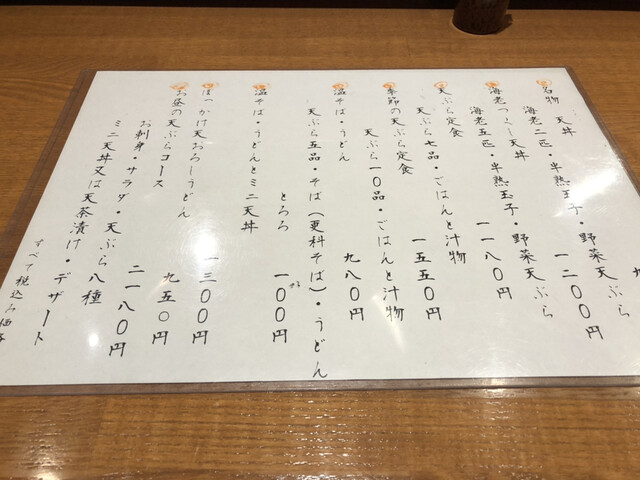 名物 天丼
海老二匹・半熟玉子・野菜天ぷら
一二〇〇円
海老づくし天丼
海老五匹・半熟玉子・野菜天ぷら
一一八〇円
天ぷら定食
天ぷら七品・ごはんと汁物
一五五〇円
季節の天ぷら定食
天ぷら一〇品・ごはんと汁物
九八〇円
温そば・うどん
天ぷら五品・そば(更科そば)・うどん
とろろ 一〇〇円
温そば・うどんとミニ天丼
一三〇〇円
ぶっかけ天おろしうどん
九五〇円
お昼の天ぷらコース
お刺身・サラダ・天ぷら八種
ミニ天丼又は天茶漬け・デザート
二一八〇円
すべて税込み価格